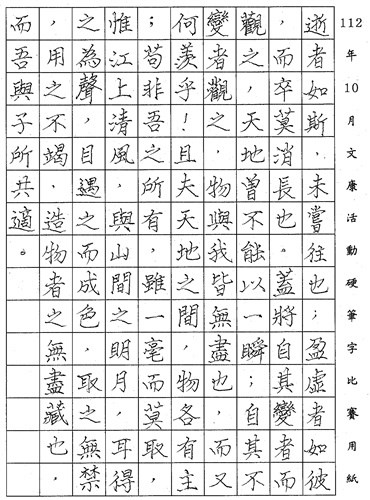 112年10月文康活動硬筆字比賽用紙
逝者如斯，未嘗往也；盈虛者如彼
，而卒莫消長也。蓋將自其變者而
觀之，天地曾不能以一瞬；自其不
變者觀之，物與我皆無盡也，而又
何羨乎！且夫天地之間，物各有主
；苟非吾之所有，雖一毫而莫取，
惟江上清風，與山間之明月，耳得
之為聲，目遇之而成色，取之無禁
，用之不竭，造物者之無盡藏也，
而吾與子所共適。